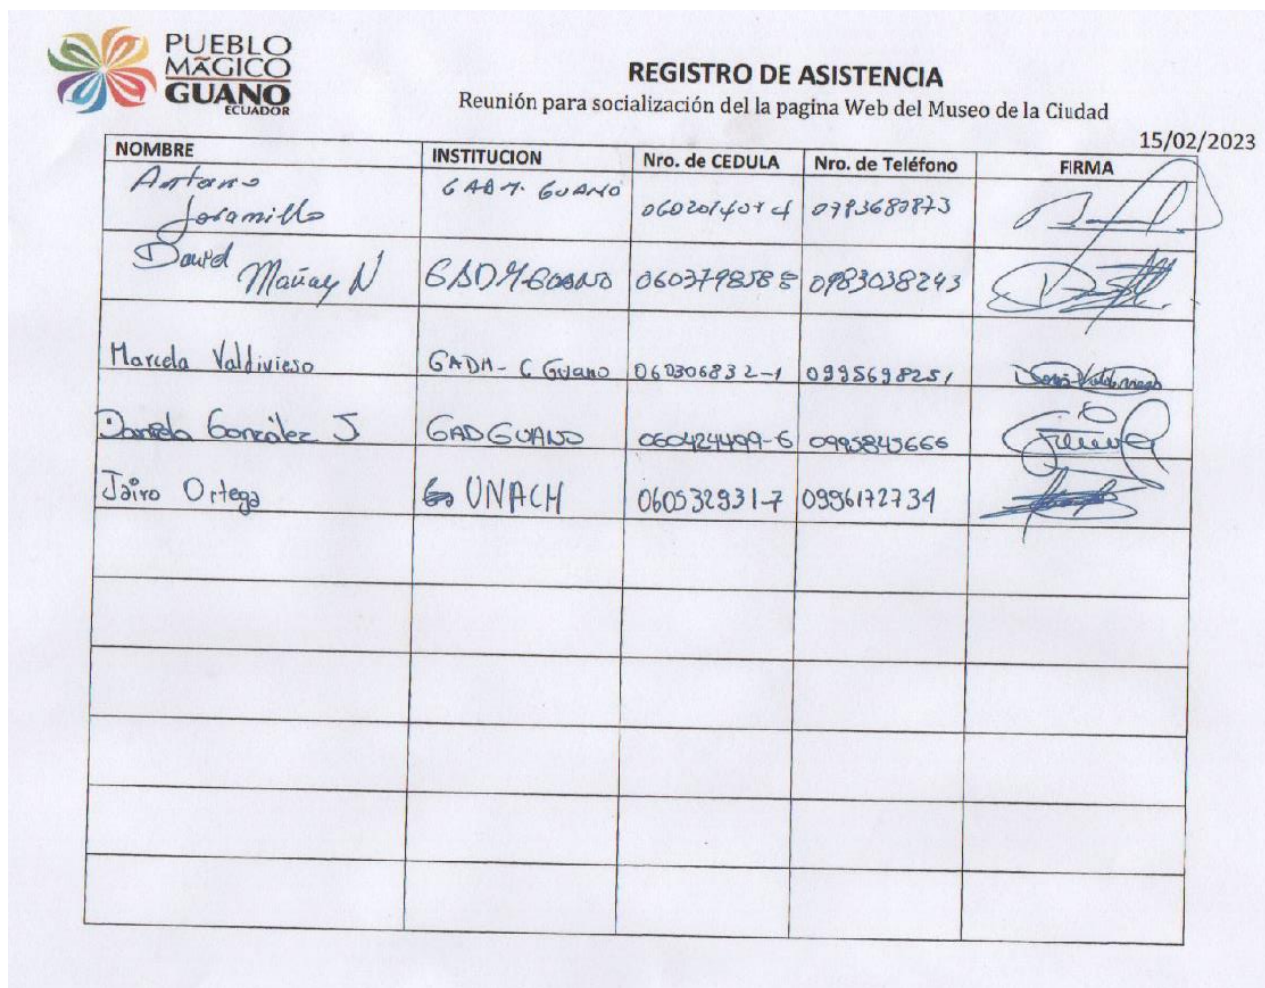 PUEBLO
MÁGICO
GUANO
ECUADOR
REGISTRO DE ASISTENCIA
Reunión para socialización del la pagina Web del Museo de la Ciudad
15/02/2023
NOMBRE INSTITUCION Nro. de CEDULA Nro. de Teléfono FIRMA
Antonio GADM. GUANO
Jaramillo
David
Mañay N GADMGUANO 0983038243
Marcela Valdivieso GADM- C Guano 060306832-1 0995698251
Daniela González J. GADGUANO 060424499-6 0995845666
Jairo Ortega UNACH 060532931-7 0996172734